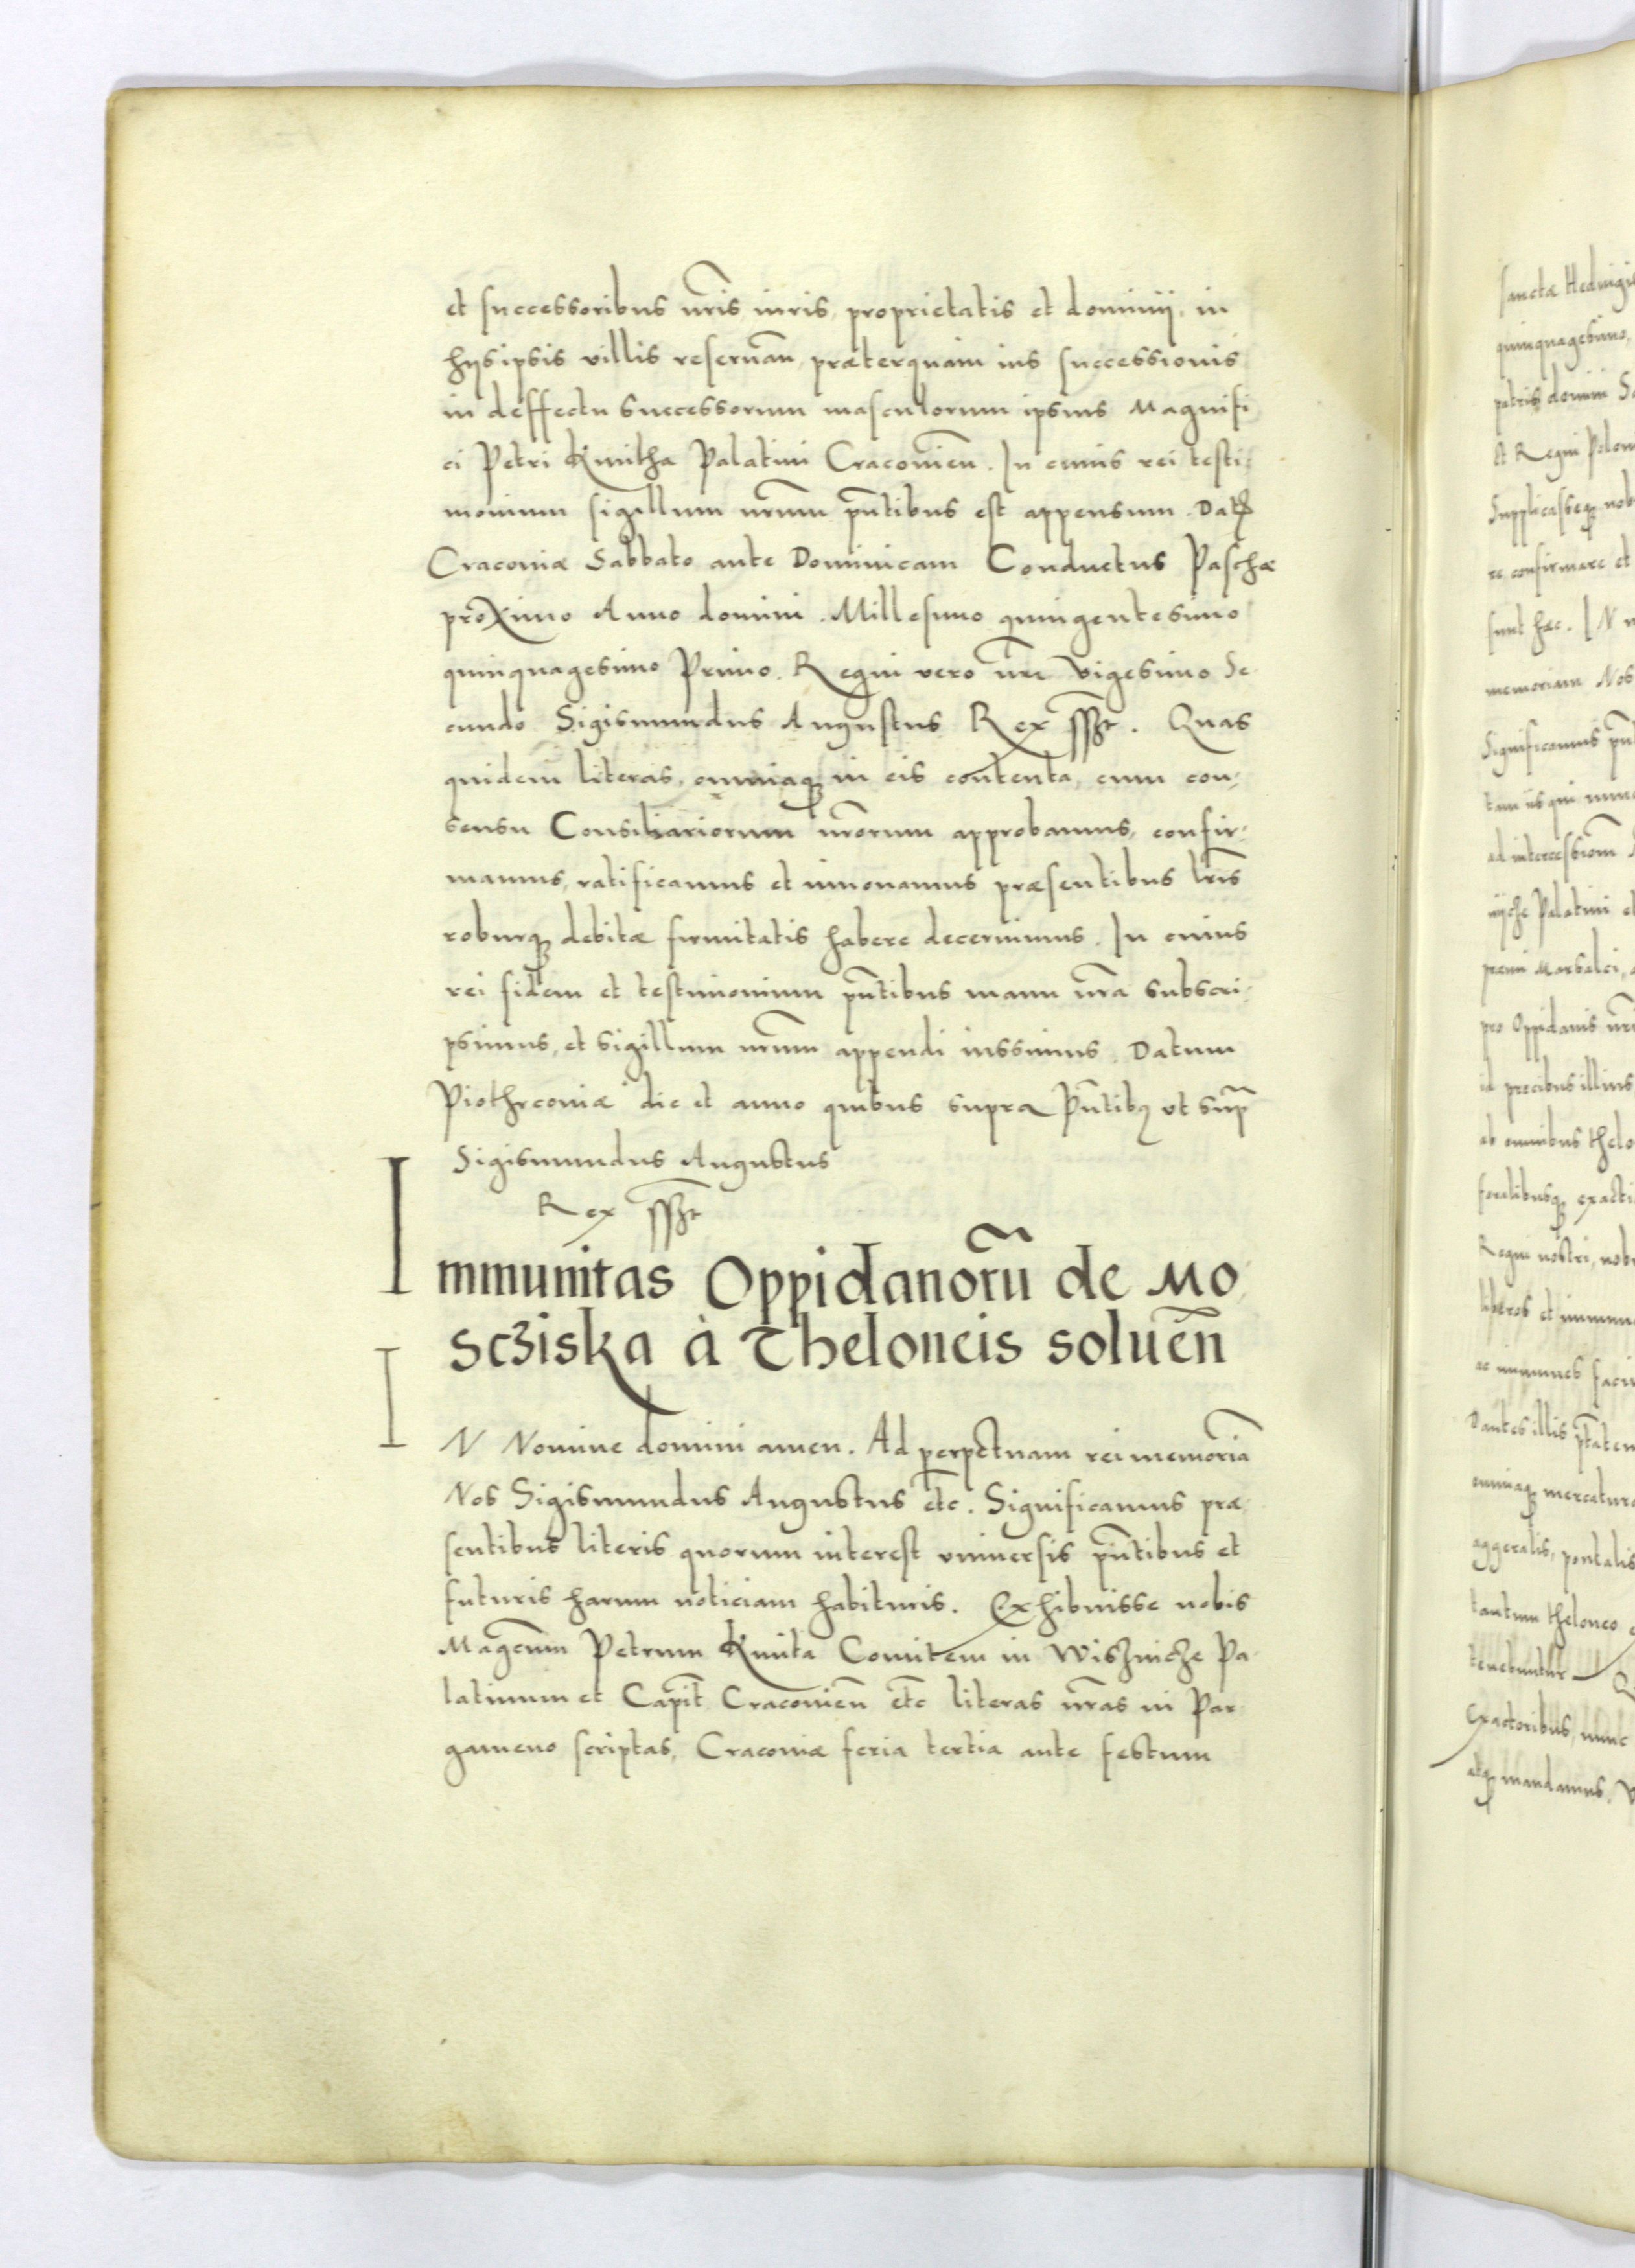 et successoribus nr̃is iuris, proprietatis et dominij, in
hijs ipsis villis reseruan̄, præterquam ius successionis
in deffectu successorum masculorum ipsius Magnifi
ci Petri Kmitha Palatini Cracouien̄. In cuius rei testi-
monium sigillum nr̃um pn̄tibus est appensum. Dat
Cracouiæ Sabbato ante Dominicam Conductus Paschæ
proximo Anno domini. Millesimo quingentesimo
quinquagesimo Primo. Regni vero nr̃i Vigesimo Se-
cundo Sigismundus Augustus Rex sszt. Quas
quidem literas, omniaq; in eis contenta, cum con-
sensu Consiliariorum nr̃orum approbamus, confir-
mamus, ratificamus et innouamus præsentibus lr̃is
roburq; debitæ firmitatis habere decernimus. In cuius
rei fidem et testimonium pn̄tibus manu nr̃a subscri-
psimus, et sigillum nr̃um appendi iussimus. Datum
Piothrcouiæ die et anno quibus supra Pn̄tibꝫ vt supr̄
Sigismundus Augustus
Rex sszt
Immunitas Oppidanorũ de Mo-
scziska à Theloneis soluen̄
IN Nomine domini amen. Ad perpetuam rei memoriā
Nos Sigismundus Augustus etc̄. Significamus præ-
sentibus literis quorum interest vniuersis pn̄tibus et
futuris harum noticiam habituris. Exhibuisse nobis
Magcum̄ Petrum Kmita Comitem in Wisznicze Pa-
latinum et Capit̄ Cracouien̄ etc̄ literas nr̃as in Par-
gameno scriptas, Cracouiæ feria tertia ante festum
sanctæ Hedwigis
quinquagesimo,
patris domini S
et Regni Polon
Supplicasseq; nob
re confirmare et
sunt hæc. IN
memoriam Nos
Significamus pn̄
tam iis qui nunc
ad intercessionem̄
Palatini et
premi Marsalci,
pro Oppidanis nr̃
id precibus illius
ab omnibus thelo
foralibusq; exacti
Regni nostri, nob
liberos et immun
ac immunes faci
Dantes illis pt̄aten
omniaq; mercatura
aggeralis, pontalis
tantum theloneo
tenebuntur
Exactoribus, nunc
atq; mandamus,